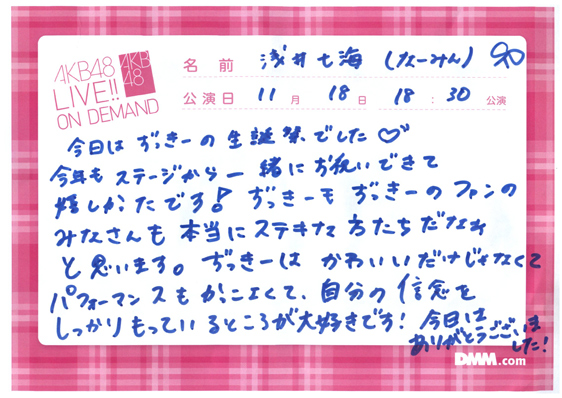 AKB48
LIVE!!
ON DEMAND
AKB
48
名前 浅井七海 (なーみん)
公演日 11月 18日 18:30 公演
今日は ぢっきーの 生誕祭でした♡
今年も ステージから 一緒に お祝いできて
嬉しかったです! ぢっきーも ぢっきーの ファンの
みなさんも 本当に ステキな 方たちだなぁ
と思います。ぢっきーは かわいいだけじゃなくて
パフォーマンスも かっこよくて、自分の 信念を
しっかり もっているところが 大好きです! 今日は
ありがとうございま
した!
DMM.com